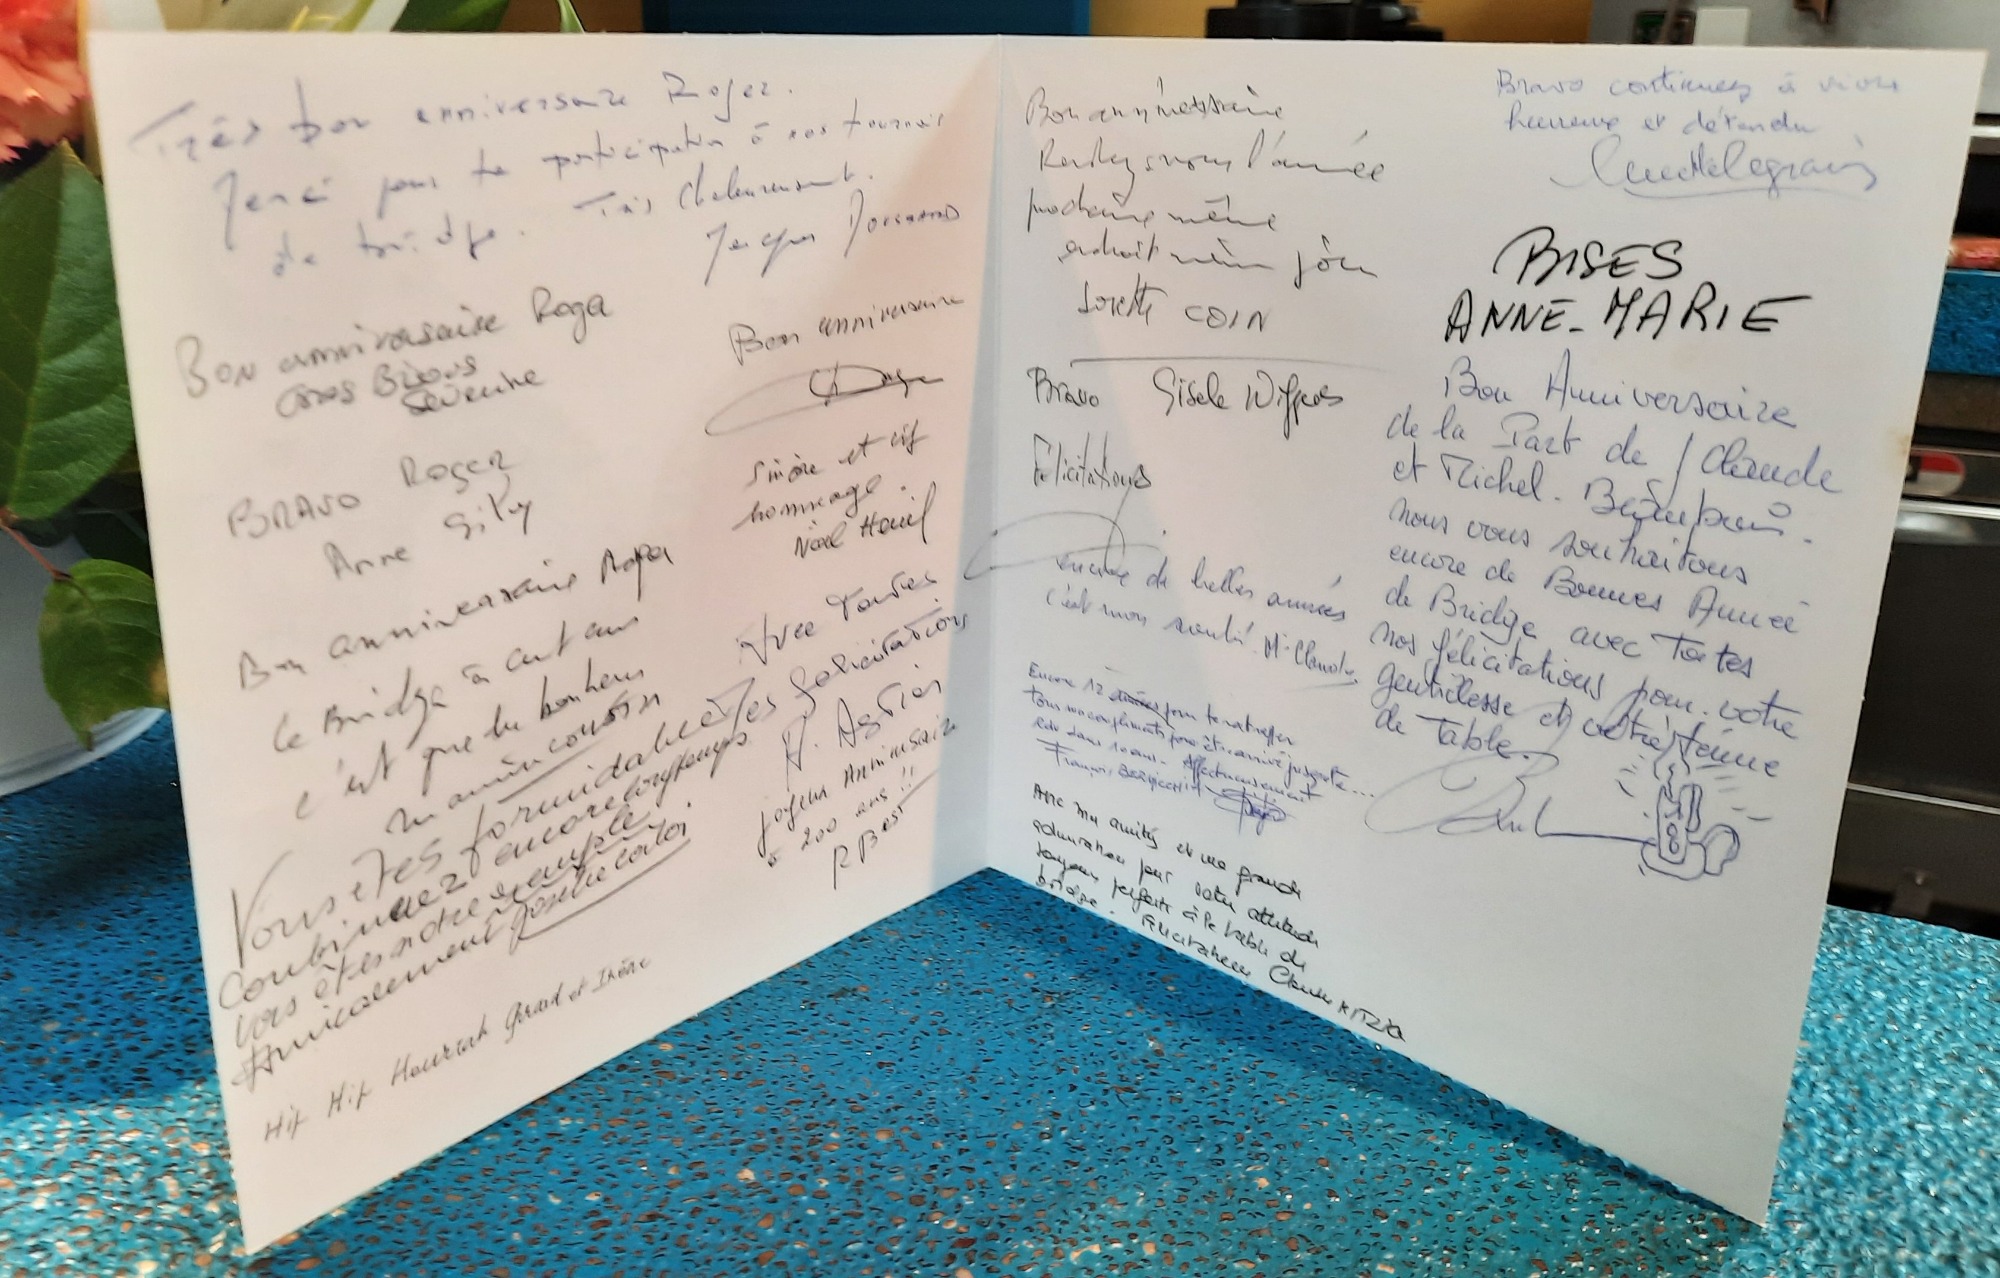 Très bon anniversaire Roger.
Merci pour ta participation à nos tournois
de bridge. Très Chaleureusement.
Jacques
Bon anniversaire Roger
Gros Bisous
Séverine
Bon anniversaire
BRAVO Roger
Anne Gilly
Sincère et vif
hommage.
Noël
Bon anniversaire Roger
le Bridge à cent ans
c'est que du bonheur
Avec Toutes
mes felicitations
Vous êtes formidable
continuez encore longtemps
vous êtes notre exemple
Amicalement
Joyeux Anniversaire
à 200 ans !!
R Best
Hip Hip Hourrah Gérard et Irène
Bon anniversaire
Rendez vous l'année
prochaine même
endroit même jour
COIN
Bravo Gisèle
Félicitations
encore de belles années
c'est mon souhait. M. Claude
Encore 12 pour te rattraper
Tous mes compliments pour être arrivé jusque là...
dans 10 ans. Affectueusement
Avec mon amitié et ma grande
admiration pour votre attitude
toujours parfaite à la table de
bridge. Félicitations Claude
Bravo continuez à vivre
heureux et détendu
BISES
ANNE-MARIE
Bon Anniversaire
de la Part de Claude
et Michel.
nous vous souhaitons
encore de Bonnes Année
de Bridge avec Totes
nos félicitations pour votre
gentillesse et votre tenue
de Table.